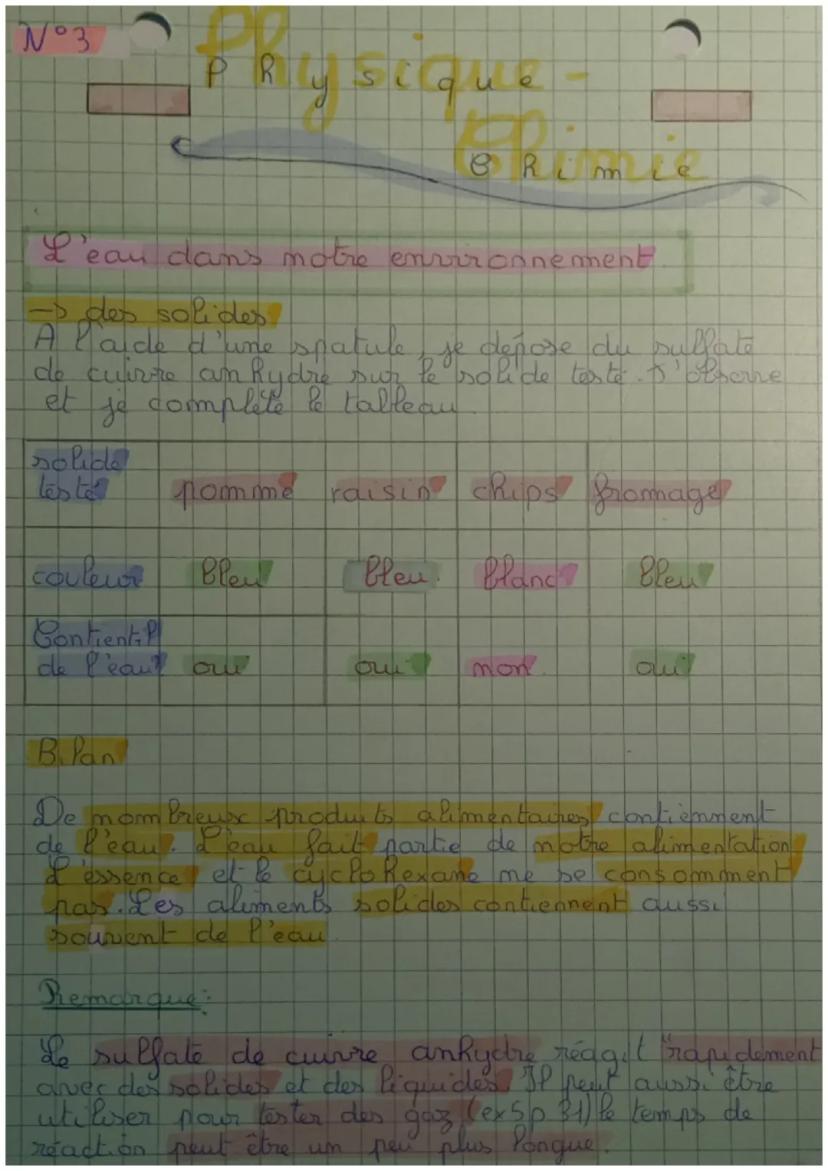 N°3
Physique -
Physique
Chimie
Chimie
L'eau dans notre environnement
-> des solides
A l'aide d'une spatule, je dépose du sulfate
de cuivre anhydre sur le solide testé. J'observe
et je complète le tableau.
solide testé pomme raisin chips fromage
couleur bleu bleu blanc bleu
Contient-il de l'eau? oui oui non oui
Bilan
De nombreux produits alimentaires contiennent
de l'eau. L'eau fait partie de notre alimentation
L'essence et le cyclohexane ne se consomment
pas. Les aliments solides contiennent aussi
souvent de l'eau.
Remarque:
Le sulfate de cuivre anhydre réagit rapidement
avec des solides et des liquides. Il peut aussi être
utiliser pour tester des gaz (ex 5 p 31) le temps de
réaction peut être un peu plus longue.